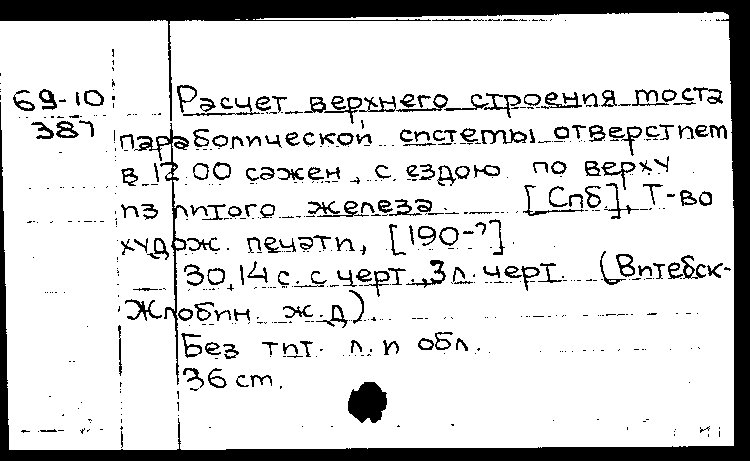 69-10
387
Расчет верхнего строения моста
параболической системы отверстием
в 12.00 сажен, с ездою по верху
из литого железа. [Спб.], Т-во
худож. печати, [190-?].
30,14 с. с черт., 3 л. черт. (Витебск-
Жлобин. ж.д).
Без тит. л. и обл.
36 см.